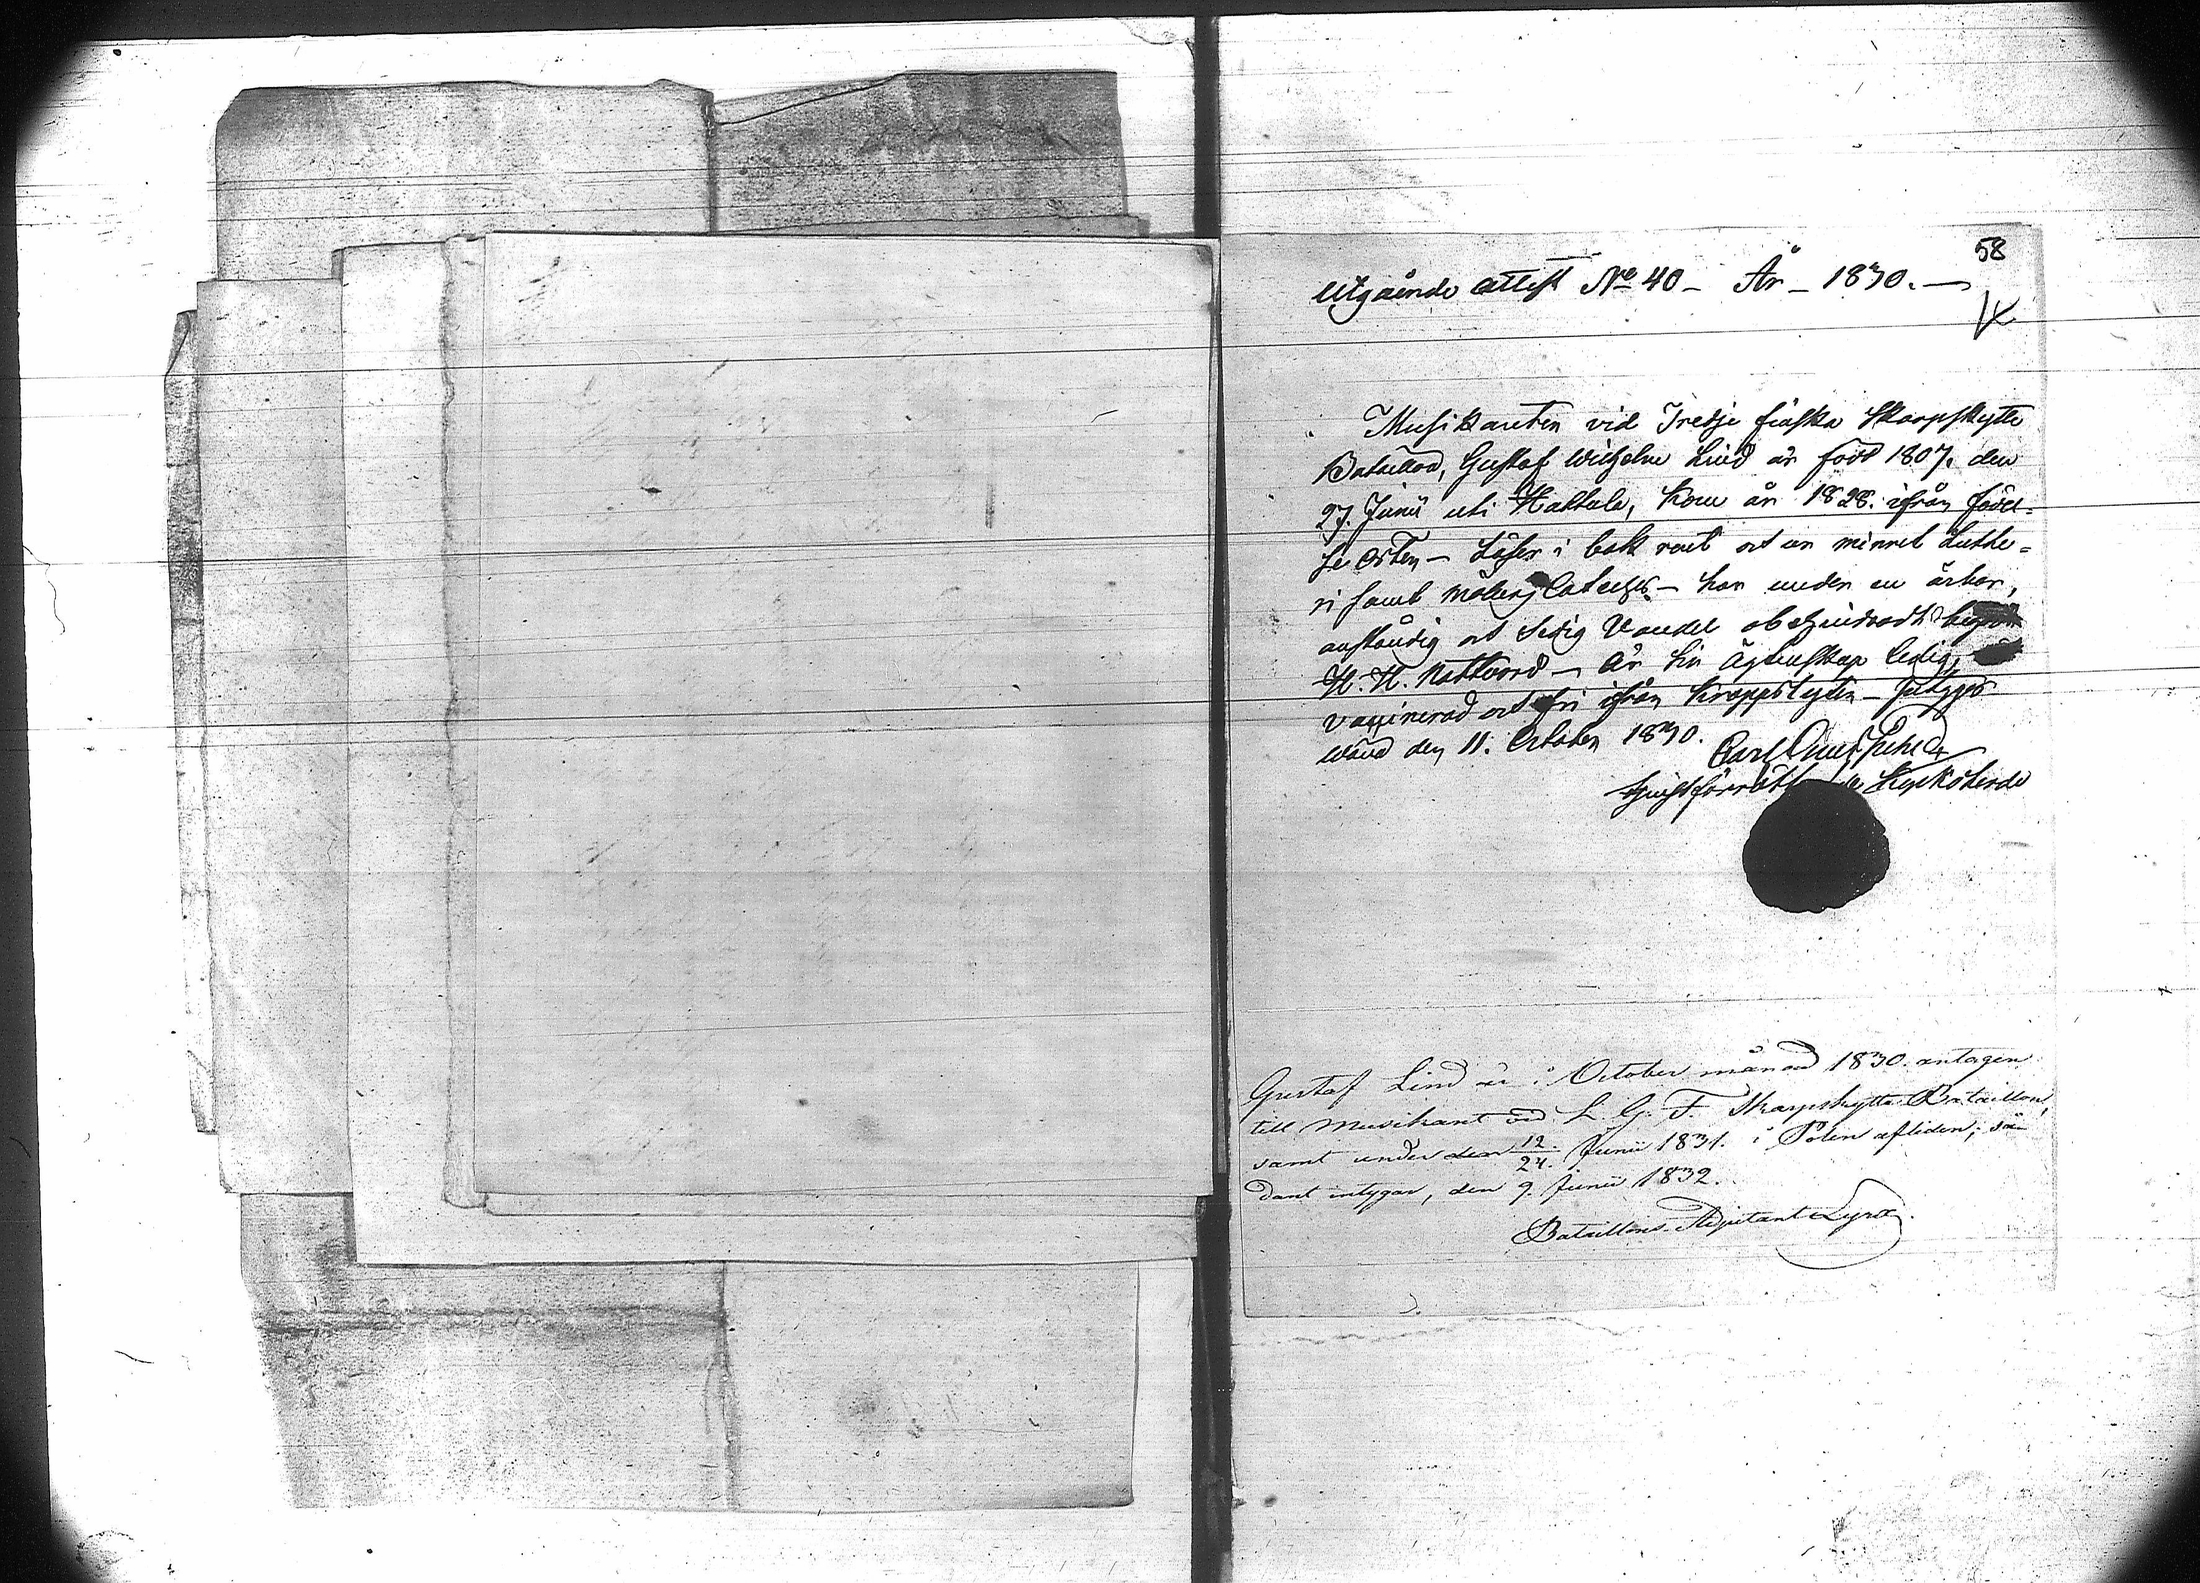 58
Utgående attest No 40 – År – 1830. –
Musikanten vid Tredje finska Skarpskytte
Bataillon, Gustaf Wilhelm Lind är född 1807. den
27. Junii uti Hattula, kom år 1828. ifrån födel=
se orten – Läser i bok rent och an minnet Luthe=
ri samt – har under en ärbar,
anständig och sedig Vandel
H. H. Nattvard – Är till Ägtenskap ledig,
vaccinerad och fri ifrån kroppslyten – Intygas
den 11. October 1830. Carl
Gustaf Lind är i October månad 1830. antagen
till Musikant vid L. G. F. Skarpskytte Bataillon,
samt under den 12/24. Junii 1831. i Polen afliden; så-
dant intygar, den 9. Junii 1832.
Bataillons Adjutant